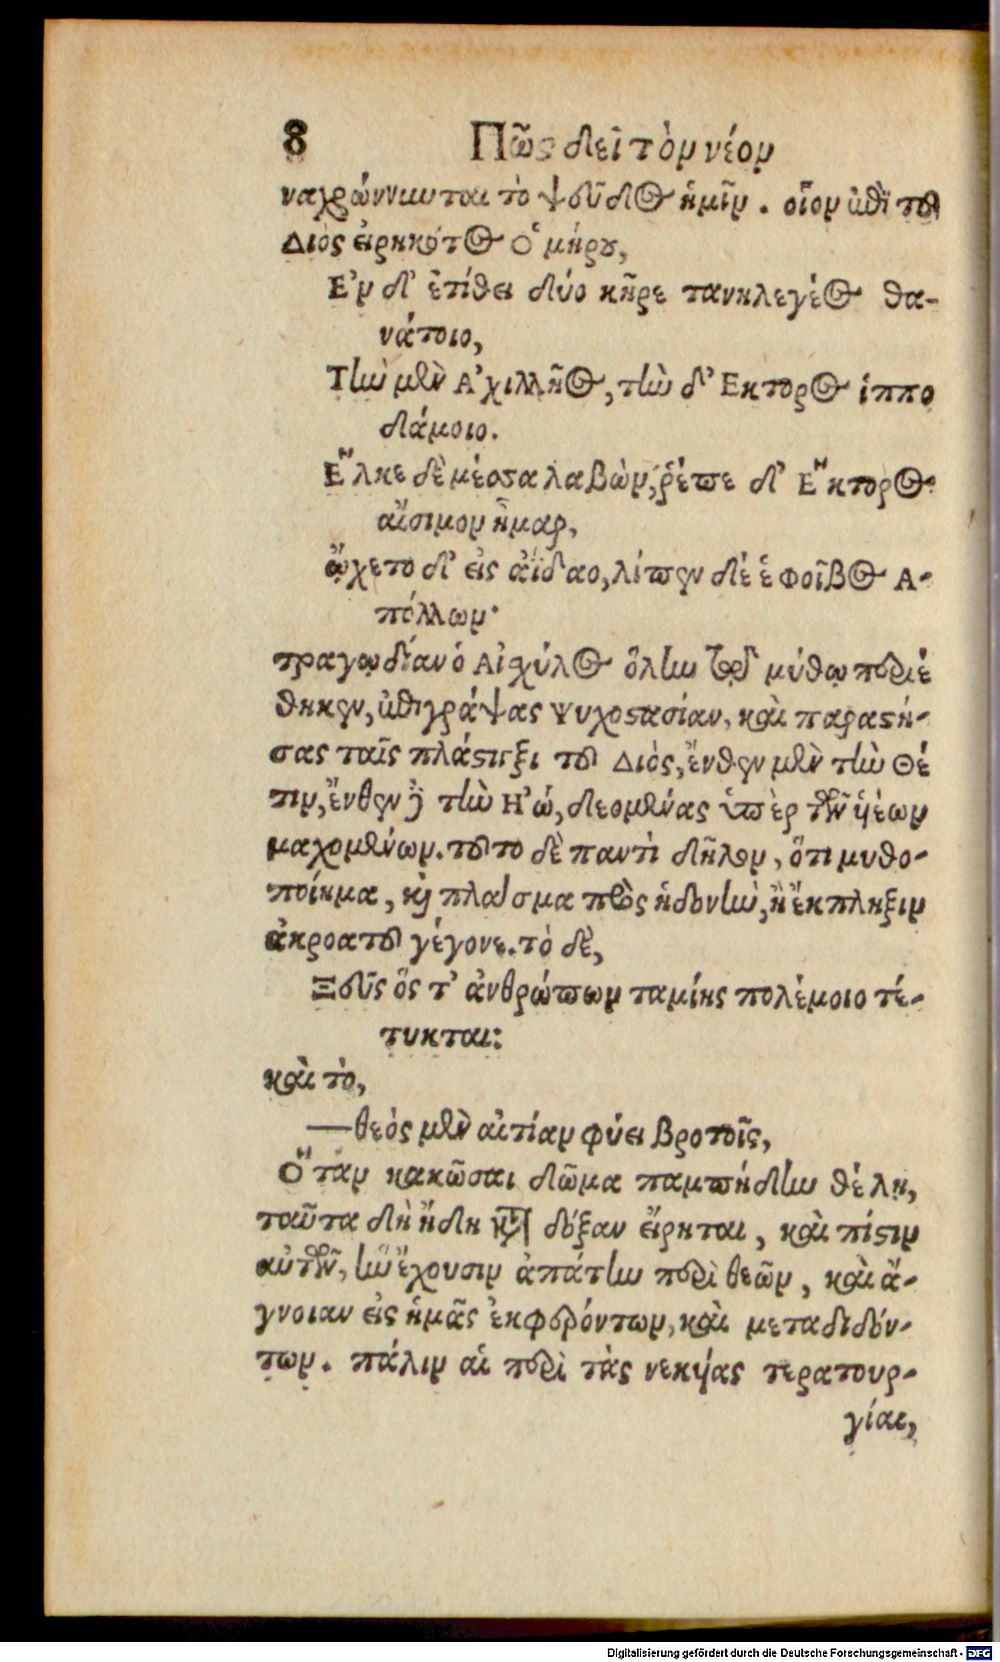 8 Πῶς δεῖ τὸν νέον
ναχρώννυνται τὸ ψεῦδος ἡμῖν. οἷον ἐπὶ τοῦ
Διὸς εἰρηκότος Ὁμήρου,
Ἐν δ' ἐτίθει δύο κῆρε τανηλεγέος θα-
νάτοιο,
Τὴν μὲν Ἀχιλλῆος, τὴν δ' Ἕκτορος ἱππο
δάμοιο.
Ἕλκε δὲ μέσσα λαβὼν, ῥέπε δ' Ἕκτορος
αἴσιμον ἦμαρ,
ᾤχετο δ' εἰς ἀΐδαο, λίπεν δέ ἑ Φοῖβος Ἀ-
πόλλων·
τραγῳδίαν ὁ Αἰσχύλος ὅλην τῷ μύθῳ περιέ
θηκεν, ἐπιγράψας Ψυχοστασίαν, καὶ παραστή-
σας ταῖς πλάστιγξι τοῦ Διὸς, ἔνθεν μὲν τὴν Θέ
τιν, ἔνθεν δὲ τὴν Ἠώ, δεομένας ὑπὲρ τῶν ὑέων
μαχομένων. τοῦτο δὲ παντὶ δῆλον, ὅτι μυθο-
ποίημα, καὶ πλάσμα πρὸς ἡδονὴν, ἢ ἔκπληξιν
ἀκροατοῦ γέγονε. τὸ δὲ,
Ζεῦς ὅς τ' ἀνθρώπων ταμίης πολέμοιο τέ-
τυκται:
καὶ τὸ,
—θεὸς μὲν αἰτίαν φύει βροτοῖς,
Ὅταν κακῶσαι δῶμα παμπήδην θέλη,
ταῦτα δὴ ἤδη κατὰ δόξαν εἴρηται, καὶ πίστιν
αὐτῶν, ἣν ἔχουσιν ἀπάτην περὶ θεῶν, καὶ ἄ-
γνοιαν εἰς ἡμᾶς ἐκφερόντων, καὶ μεταδιδόν-
των. πάλιν αἱ περὶ τὰς νεκυίας τερατουρ-
γίαι,
Digitalisierung gefördert durch die Deutsche Forschungsgemeinschaft - DFG